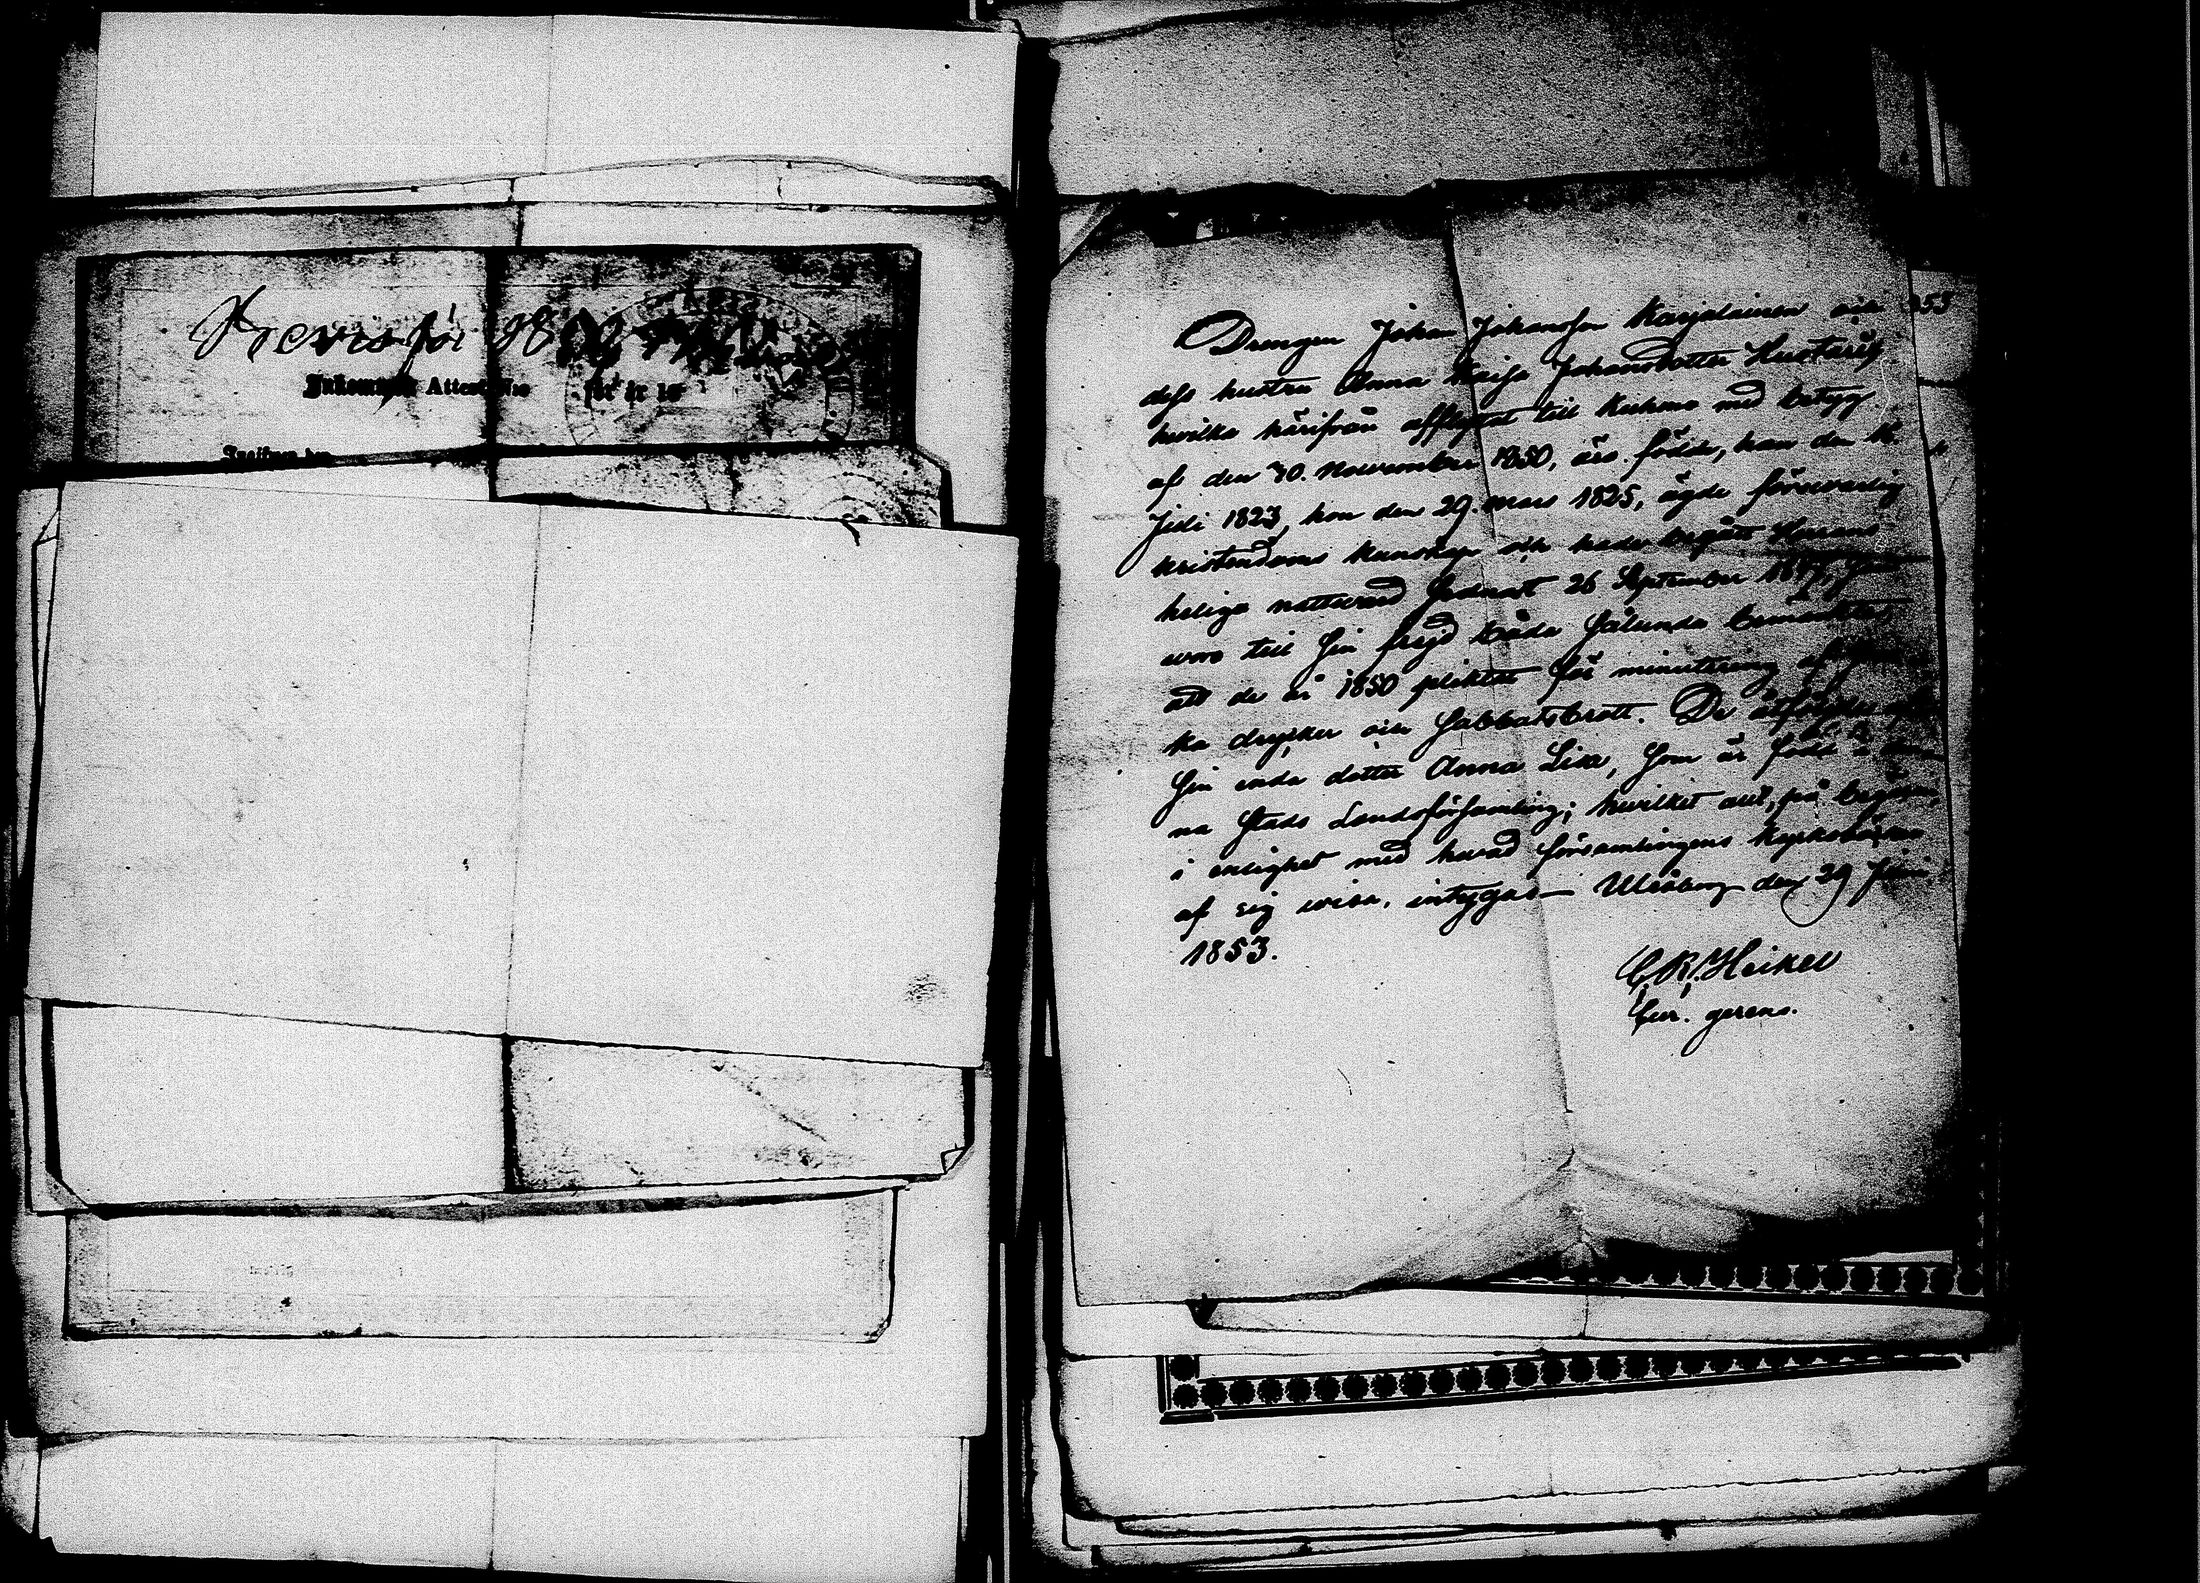 Inkommna Attest No för år 18
Drengen Johan Johansson Karjalainen och
dess hustru Anna Kaisa Johansdotter Kustasis
hvilka härifrån afflyttat till Kuhmo med betyg
af den 30. November 1850, äro födde, han den 16
Juli 1823, hon den 29. Mars 1825, ägde försvarlig
kristendoms kunskap och hade begått Herrans
heliga nattvard sednast 26 September 1847, samt
woro till sin frejd båda sålunda bemärkta
att de år 1850 pliktat för minutering af
ka drycker och sabbatsbrott. De åtföljdes af
sin enda dotter Anna Lisa, som är född i
na Stads Landsförsamling; hvilket allt, på begäran,
i enlighet med hvad församlingens kyrkoböcker
af sig wisa, intygas Uleåborg den 29 Juni
1853.
C. R. Heikel
Cur. gerens.